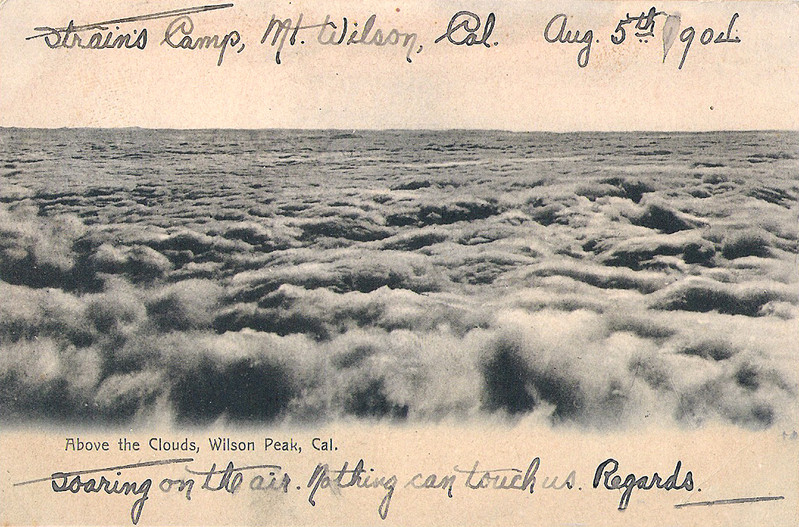 Strain's Camp, Mt. Wilson, Cal. Aug. 5th 1904.
Above the Clouds, Wilson Peak, Cal.
Soaring on the air. Nothing can touch us. Regards.